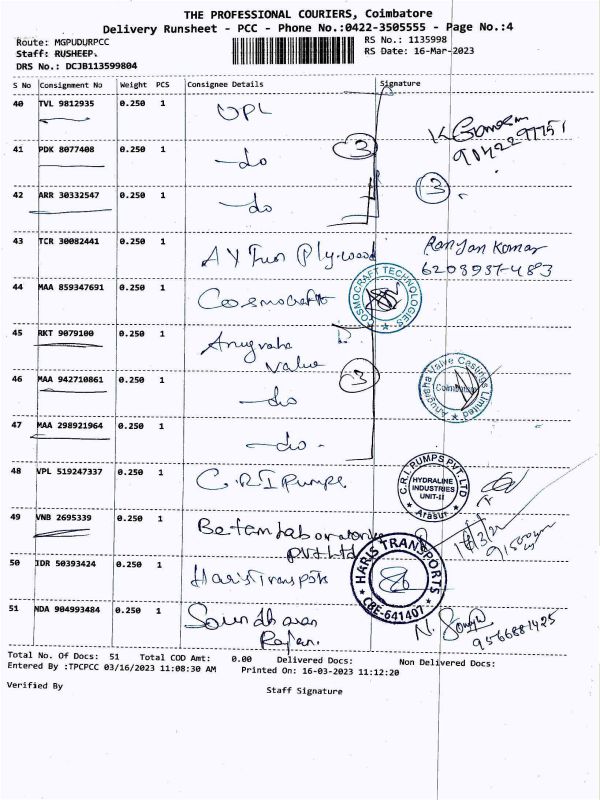 THE PROFESSIONAL COURIERS, Coimbatore
Delivery Runsheet - PCC - Phone No.:0422-3505555 - Page No.:4
Route: MGPUDURPCC
RS No.: 1135998
Staff: RUSHEEP.
RS Date: 16-Mar-2023
DRS No.: DCJB113599804
S No Consignment No Weight PCS Consignee Details Signature
40 TVL 9812935 0.250 1 UPL
K Ganesan
9042297751
41 PDK 8077408 0.250 1 -do 3
42 ARR 30332547 0.250 1 -do 3
43 TCR 30082441 0.250 1 AY Fun Plywood Ranjan Kumar
6203937-483
44 MAA 859347691 0.250 1 Cosmocraft COSMOCRAFT TECHNOLOGIES
45 RKT 9079100 0.250 1 Anugraha
Valve
46 MAA 942710861 0.250 1 -do 3 Anugraha Valve Castings Limited Coimbatore
47 MAA 298921964 0.250 1 -do-
48 VPL 519247337 0.250 1 C.R.I Pumps C.R.I. PUMPS PVT. LTD HYDRALINE INDUSTRIES UNIT-II Arasur
49 VNB 2695339 0.250 1 Betem Laboratories
PVT Ltd
50 IDR 50393424 0.250 1 Haris Transports HARIS TRANSPORTS CBE-641407
51 NDA 904993484 0.250 1 Soundhara
Rajan. N.
9566881425
Total No. Of Docs: 51 Total COD Amt: 0.00 Delivered Docs: Non Delivered Docs:
Entered By :TPCPCC 03/16/2023 11:08:30 AM Printed On: 16-03-2023 11:12:20
Verified By Staff Signature